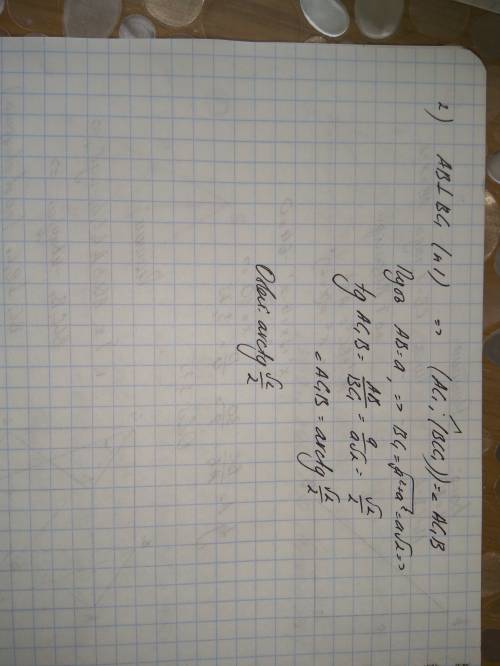 2) AB⊥BC₁ (п 1) => (AC₁; (BCC₁)) = ∠ AC₁B
Пусть AB=a, => BC₁=√a²+a²=a√2 =>
tg AC₁B = AB/BC₁ = a/a√2 = √2/2
∠ AC₁B = arctg √2/2
Ответ: arctg √2/2